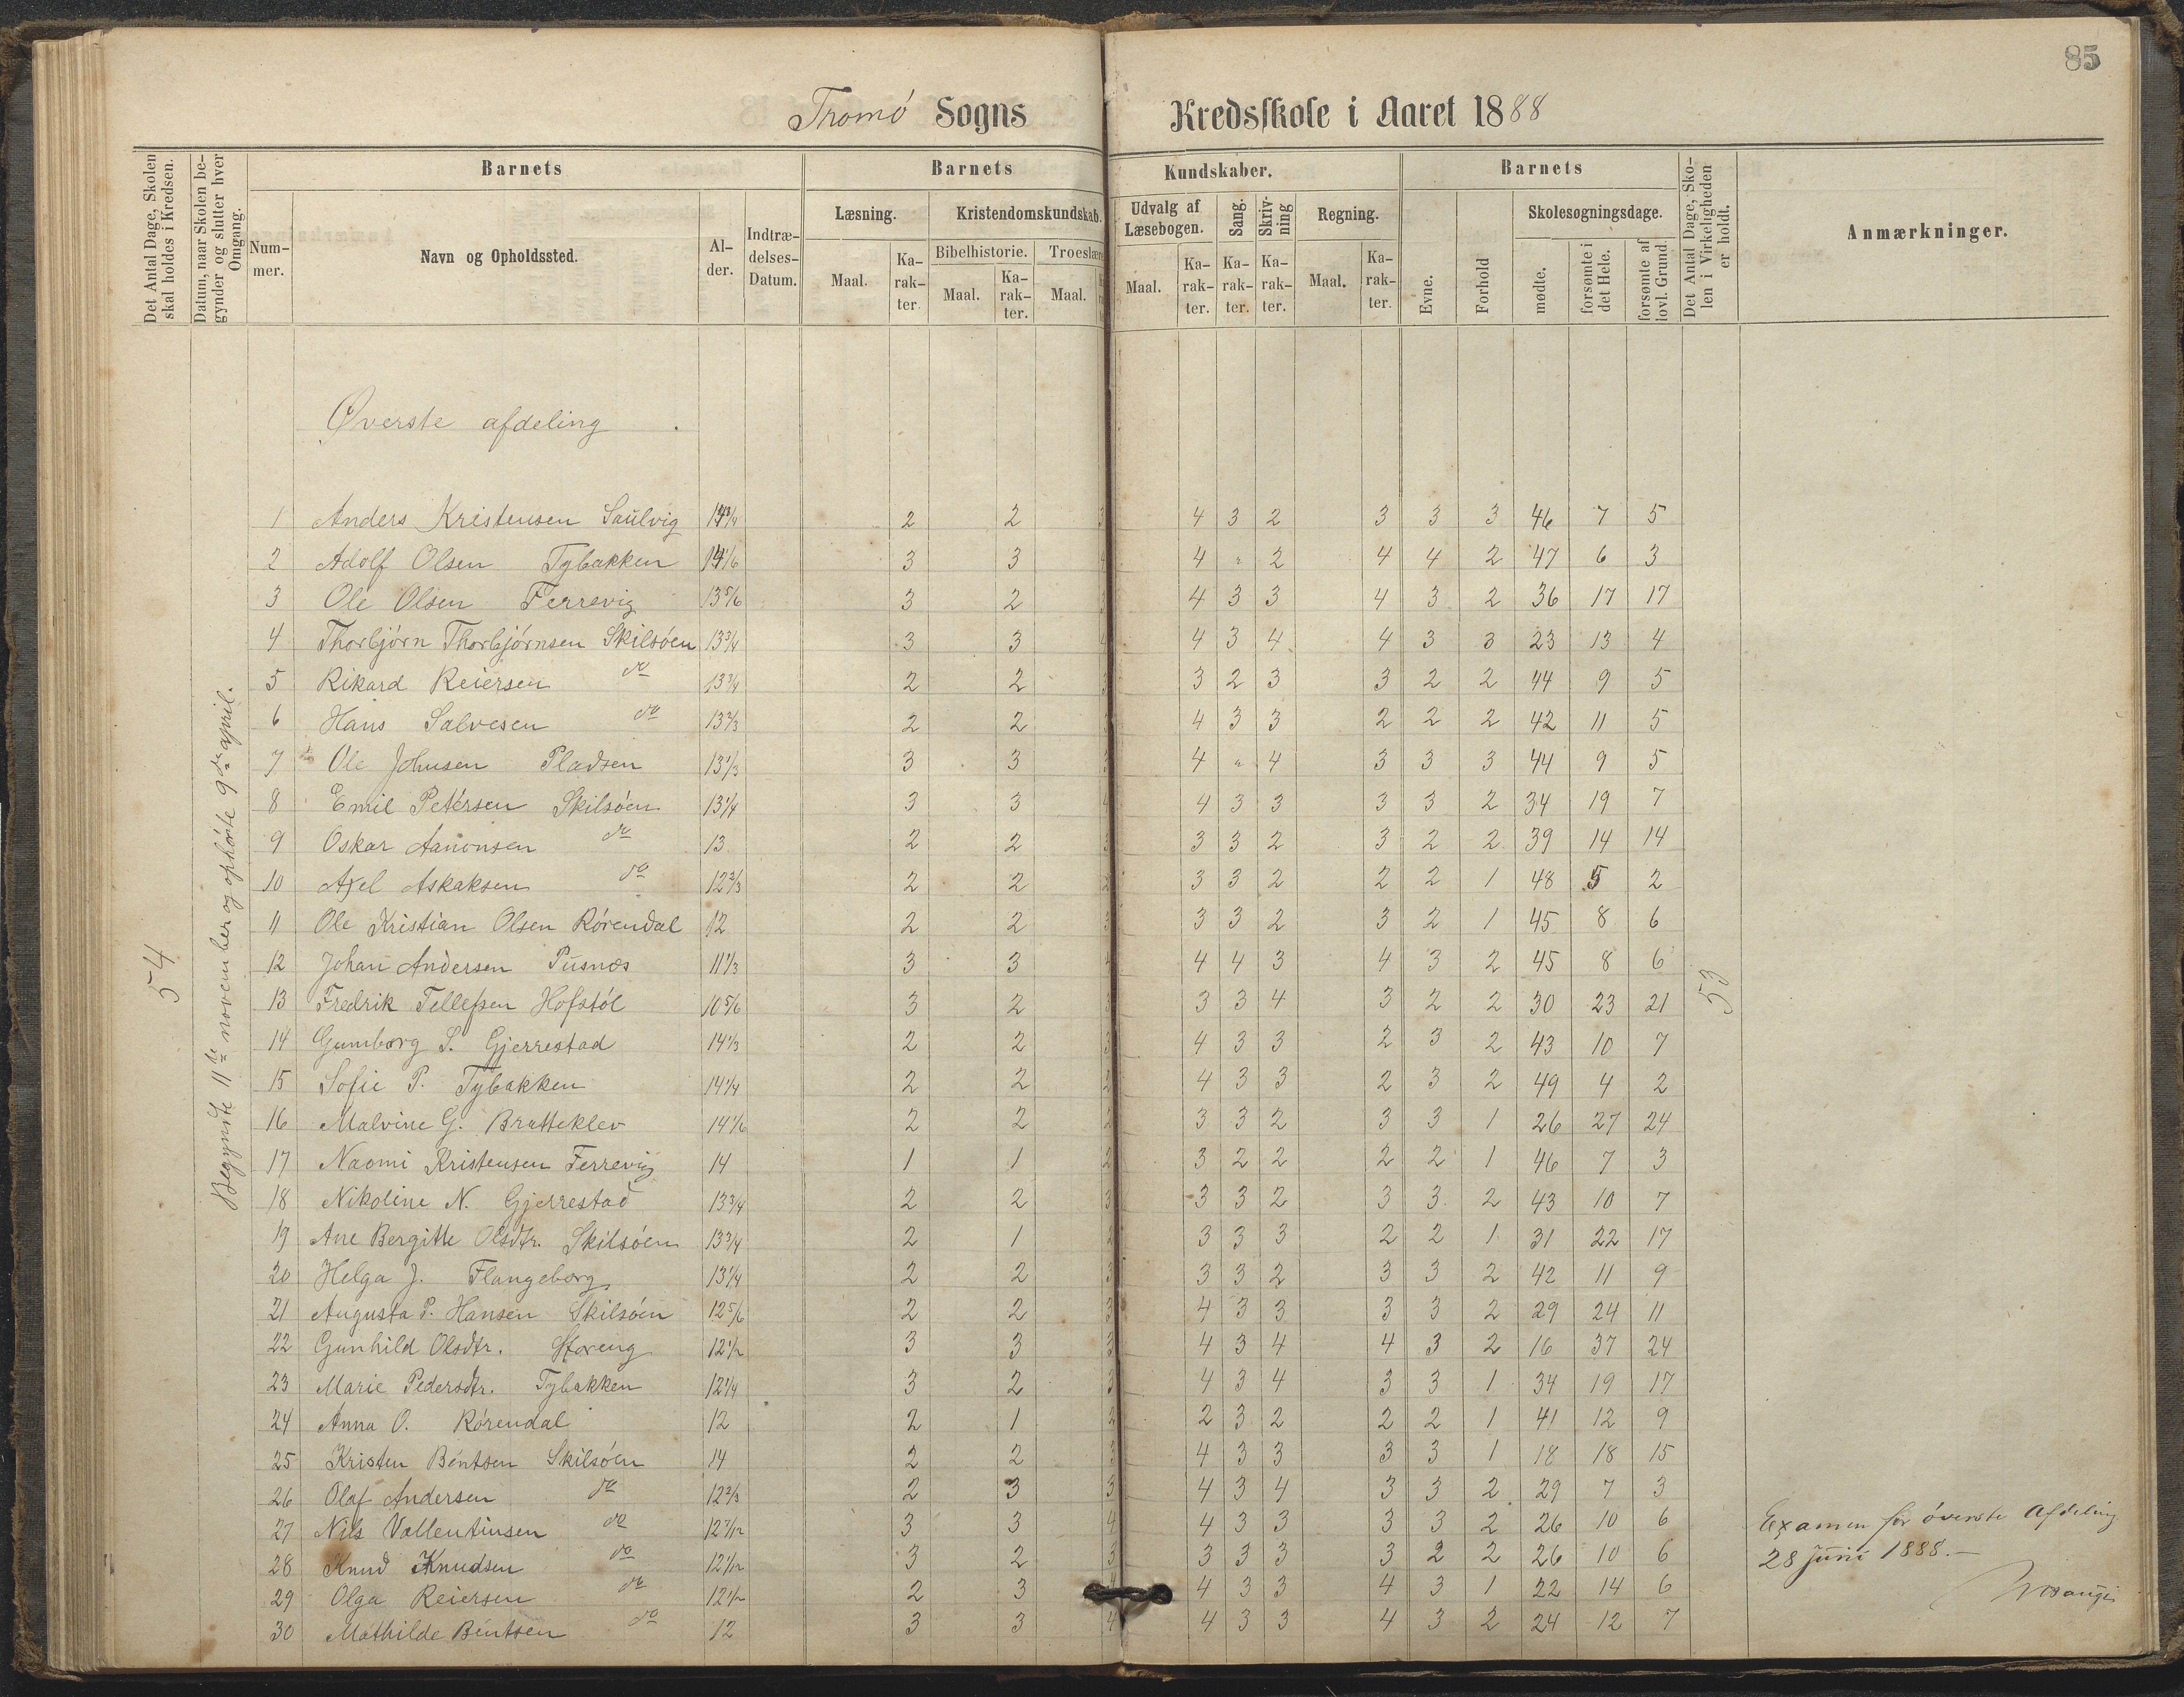 85
Tromö Sogns Kredsskole i Aaret 1888
Det Antal Dage, Skolen skal holdes i Kredsen.
Datum, naar Skolen begynder og slutter hver Omgang.
Barnets
Barnets Kundskaber.
Barnets
Det Antal Dage, Skolen i Virkeligheden er holdt.
Anmærkninger.
Nummer.
Navn og Opholdssted.
Alder.
Indtrædelses-Datum.
Læsning.
Kristendomskundskab.
Udvalg af Læsebogen.
Sang.
Skrivning
Regning.
Evne.
Forhold
Skolesøgningsdage.
Bibelhistorie.
Troeslære
Maal.
Karakter.
Maal.
Karakter.
Maal.
Maal.
Karakter.
Karakter.
Karakter.
Maal.
Karakter.
mødte.
forsømte i det Hele.
forsømte af lovl. Grund.
54
Begyndte 11te november og ophörte 9de april.
53
Øverste afdeling
1 Anders Kristensen Saulvig 14 3/4 2 2 3 4 3 2 3 3 3 46 7 5
2 Adolf Olsen Tybakken 14 1/6 3 3 4 4 " 2 4 4 2 47 6 3
3 Ole Olsen Ferrevig 13 5/6 3 2 3 4 3 3 4 3 2 36 17 17
4 Thorbjörn Thorbjörnsen Skilsöen 13 3/4 3 3 4 4 3 4 4 3 3 23 13 4
5 Rikard Reiersen do 13 3/4 2 2 3 3 2 3 3 2 2 44 9 5
6 Hans Salvesen do 13 2/3 2 2 3 4 3 3 2 2 2 42 11 5
7 Ole Johnsen Pladsen 13 1/3 3 3 3 4 " 4 3 3 3 44 9 5
8 Emil Petersen Skilsöen 13 1/4 3 3 4 4 3 3 3 3 2 34 19 7
9 Oskar Aanonsen do 13 2 2 3 3 3 2 3 2 2 39 14 14
10 Axel Askaksen do 12 2/3 2 2 2 3 3 2 2 2 1 48 5 2
11 Ole Kristian Olsen Rörendal 12 2 2 3 3 3 2 3 2 1 45 8 6
12 Johan Andersen Pusnæs 11 1/3 3 3 4 4 4 3 4 3 2 45 8 6
13 Fredrik Tellefsen Hofstöl 10 5/6 3 2 3 3 3 4 3 2 2 30 23 21
14 Gumborg S. Gjerrestad 14 1/3 2 2 3 4 3 3 2 3 2 43 10 7
15 Sofie P. Tybakken 14 1/4 2 2 2 4 3 3 2 3 2 49 4 2
16 Malvine G. Bratteklev 14 1/6 2 2 2 3 3 2 3 3 1 26 27 24
17 Naomi Kristensen Ferrevig 14 1 1 2 3 2 2 2 2 1 46 7 3
18 Nikoline N. Gjerrestad 13 3/4 2 2 3 3 3 2 3 3 2 43 10 7
19 Ane Bergitte Olsdtr. Skilsöen 13 3/4 2 1 2 3 3 3 2 2 1 31 22 17
20 Helga J. Flangeborg 13 1/4 2 2 3 3 3 2 3 3 2 42 11 9
21 Augusta P. Hansen Skilsöen 12 5/6 2 2 3 4 3 3 3 3 2 29 24 11
22 Gunhild Olsdtr. Storeng 12 1/2 3 3 3 4 3 4 4 3 2 16 37 24
23 Marie Pedersdtr. Tybakken 12 1/4 3 2 3 4 3 4 3 3 1 34 19 17
24 Anna O. Rörendal 12 2 1 2 2 3 2 2 2 1 41 12 9
25 Kristen Bentsen Skilsöen 14 2 2 3 4 3 3 3 3 1 18 18 15
26 Olaf Andersen do 12 2/3 2 3 3 4 3 4 3 3 2 29 7 3
27 Nils Vallentinsen do 12 7/12 3 3 4 4 3 3 3 3 2 26 10 6
28 Knud Knudsen do 12 1/12 3 2 3 3 3 3 3 2 2 26 10 6
29 Olga Reiersen do 12 1/2 2 3 4 3 3 4 3 1 22 14 6
30 Mathilde Bentsen do 12 3 3 4 4 3 3 4 3 2 24 12 7
Examen for överste Afdeling
28 Juni 1888.—